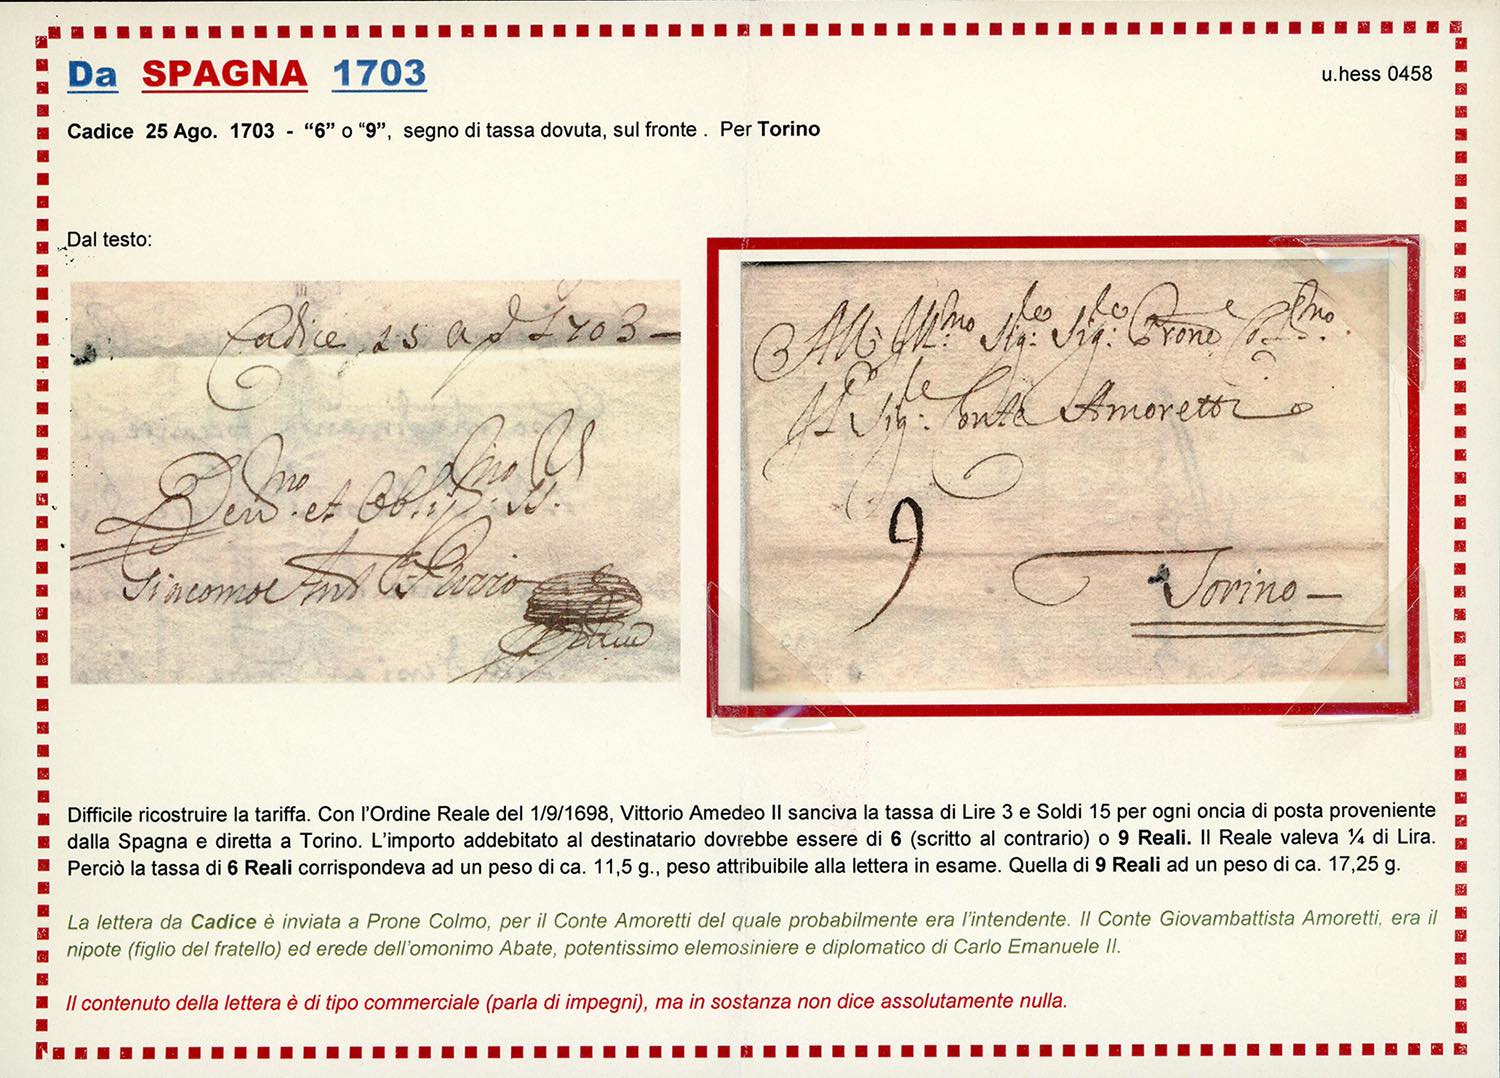 Da SPAGNA 1703
u.hess 0458
Cadice 25 Ago. 1703 - “6” o “9”, segno di tassa dovuta, sul fronte . Per Torino
Dal testo:
Cadice 25 ag 1703 –
Dev.mo et Obl.mo
Giacomo Ant
All Ill.mo Sig.re Sig.re Prone Col.mo
Il Sig.re Conte Amoretti
9
Torino –
Difficile ricostruire la tariffa. Con l’Ordine Reale del 1/9/1698, Vittorio Amedeo II sanciva la tassa di Lire 3 e Soldi 15 per ogni oncia di posta proveniente
dalla Spagna e diretta a Torino. L’importo addebitato al destinatario dovrebbe essere di 6 (scritto al contrario) o 9 Reali. Il Reale valeva ¼ di Lira.
Perciò la tassa di 6 Reali corrispondeva ad un peso di ca. 11,5 g., peso attribuibile alla lettera in esame. Quella di 9 Reali ad un peso di ca. 17,25 g.
La lettera da Cadice è inviata a Prone Colmo, per il Conte Amoretti del quale probabilmente era l’intendente. Il Conte Giovambattista Amoretti, era il
nipote (figlio del fratello) ed erede dell’omonimo Abate, potentissimo elemosiniere e diplomatico di Carlo Emanuele II.
Il contenuto della lettera è di tipo commerciale (parla di impegni), ma in sostanza non dice assolutamente nulla.